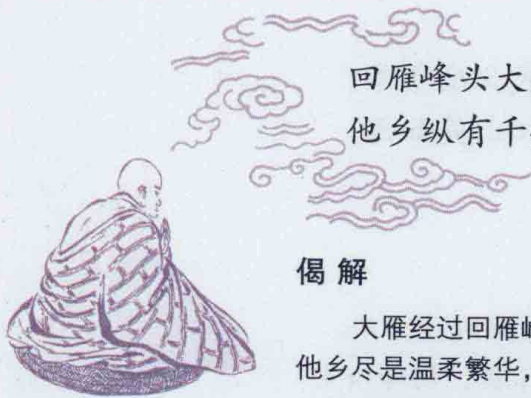 回雁峰头大
他乡纵有千
偈解
大雁经过回雁
他乡尽是温柔繁华，